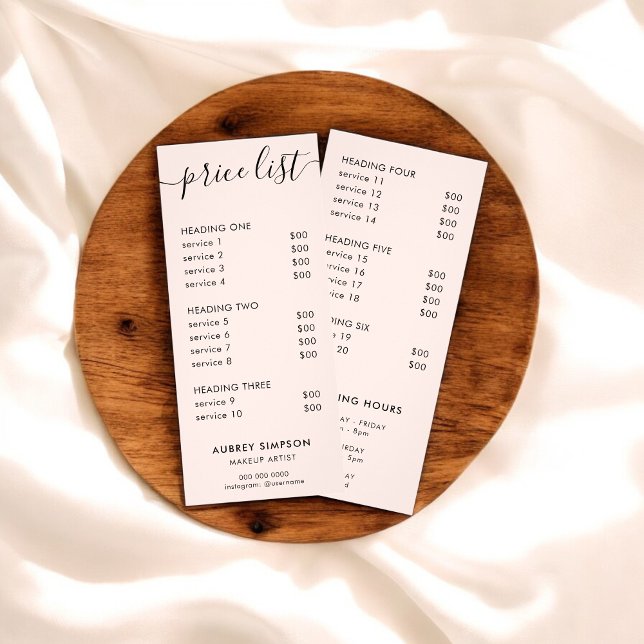 price list
HEADING ONE
service 1 $00
service 2 $00
service 3 $00
service 4 $00
HEADING TWO
service 5 $00
service 6 $00
service 7 $00
service 8 $00
HEADING THREE
service 9 $00
service 10 $00
AUBREY SIMPSON
MAKEUP ARTIST
000 000 0000
instagram: @username
HEADING FOUR
service 11 $00
service 12 $00
service 13 $00
service 14 $00
HEADING FIVE
service 15 $00
service 16 $00
service 17 $00
service 18 $00
SIX
19 $00
20 $00
HOURS
- FRIDAY
- 8pm
5pm